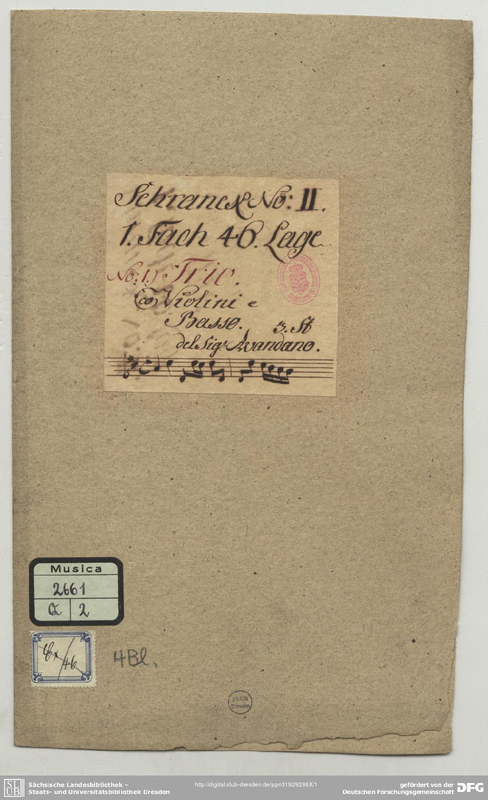 Schranck No: II.
1. Fach 46. Lage
No: 1) Trio.
Violini e
Basso. 3. St
del Sig: Avandano.
Musica
2661
Q 2
46
4Bl.
Sächsische Landesbibliothek –
Staats- und Universitätsbibliothek Dresden
http://digital.slub-dresden.de/ppn318292963/1
gefördert von der
Deutschen Forschungsgemeinschaft
DFG